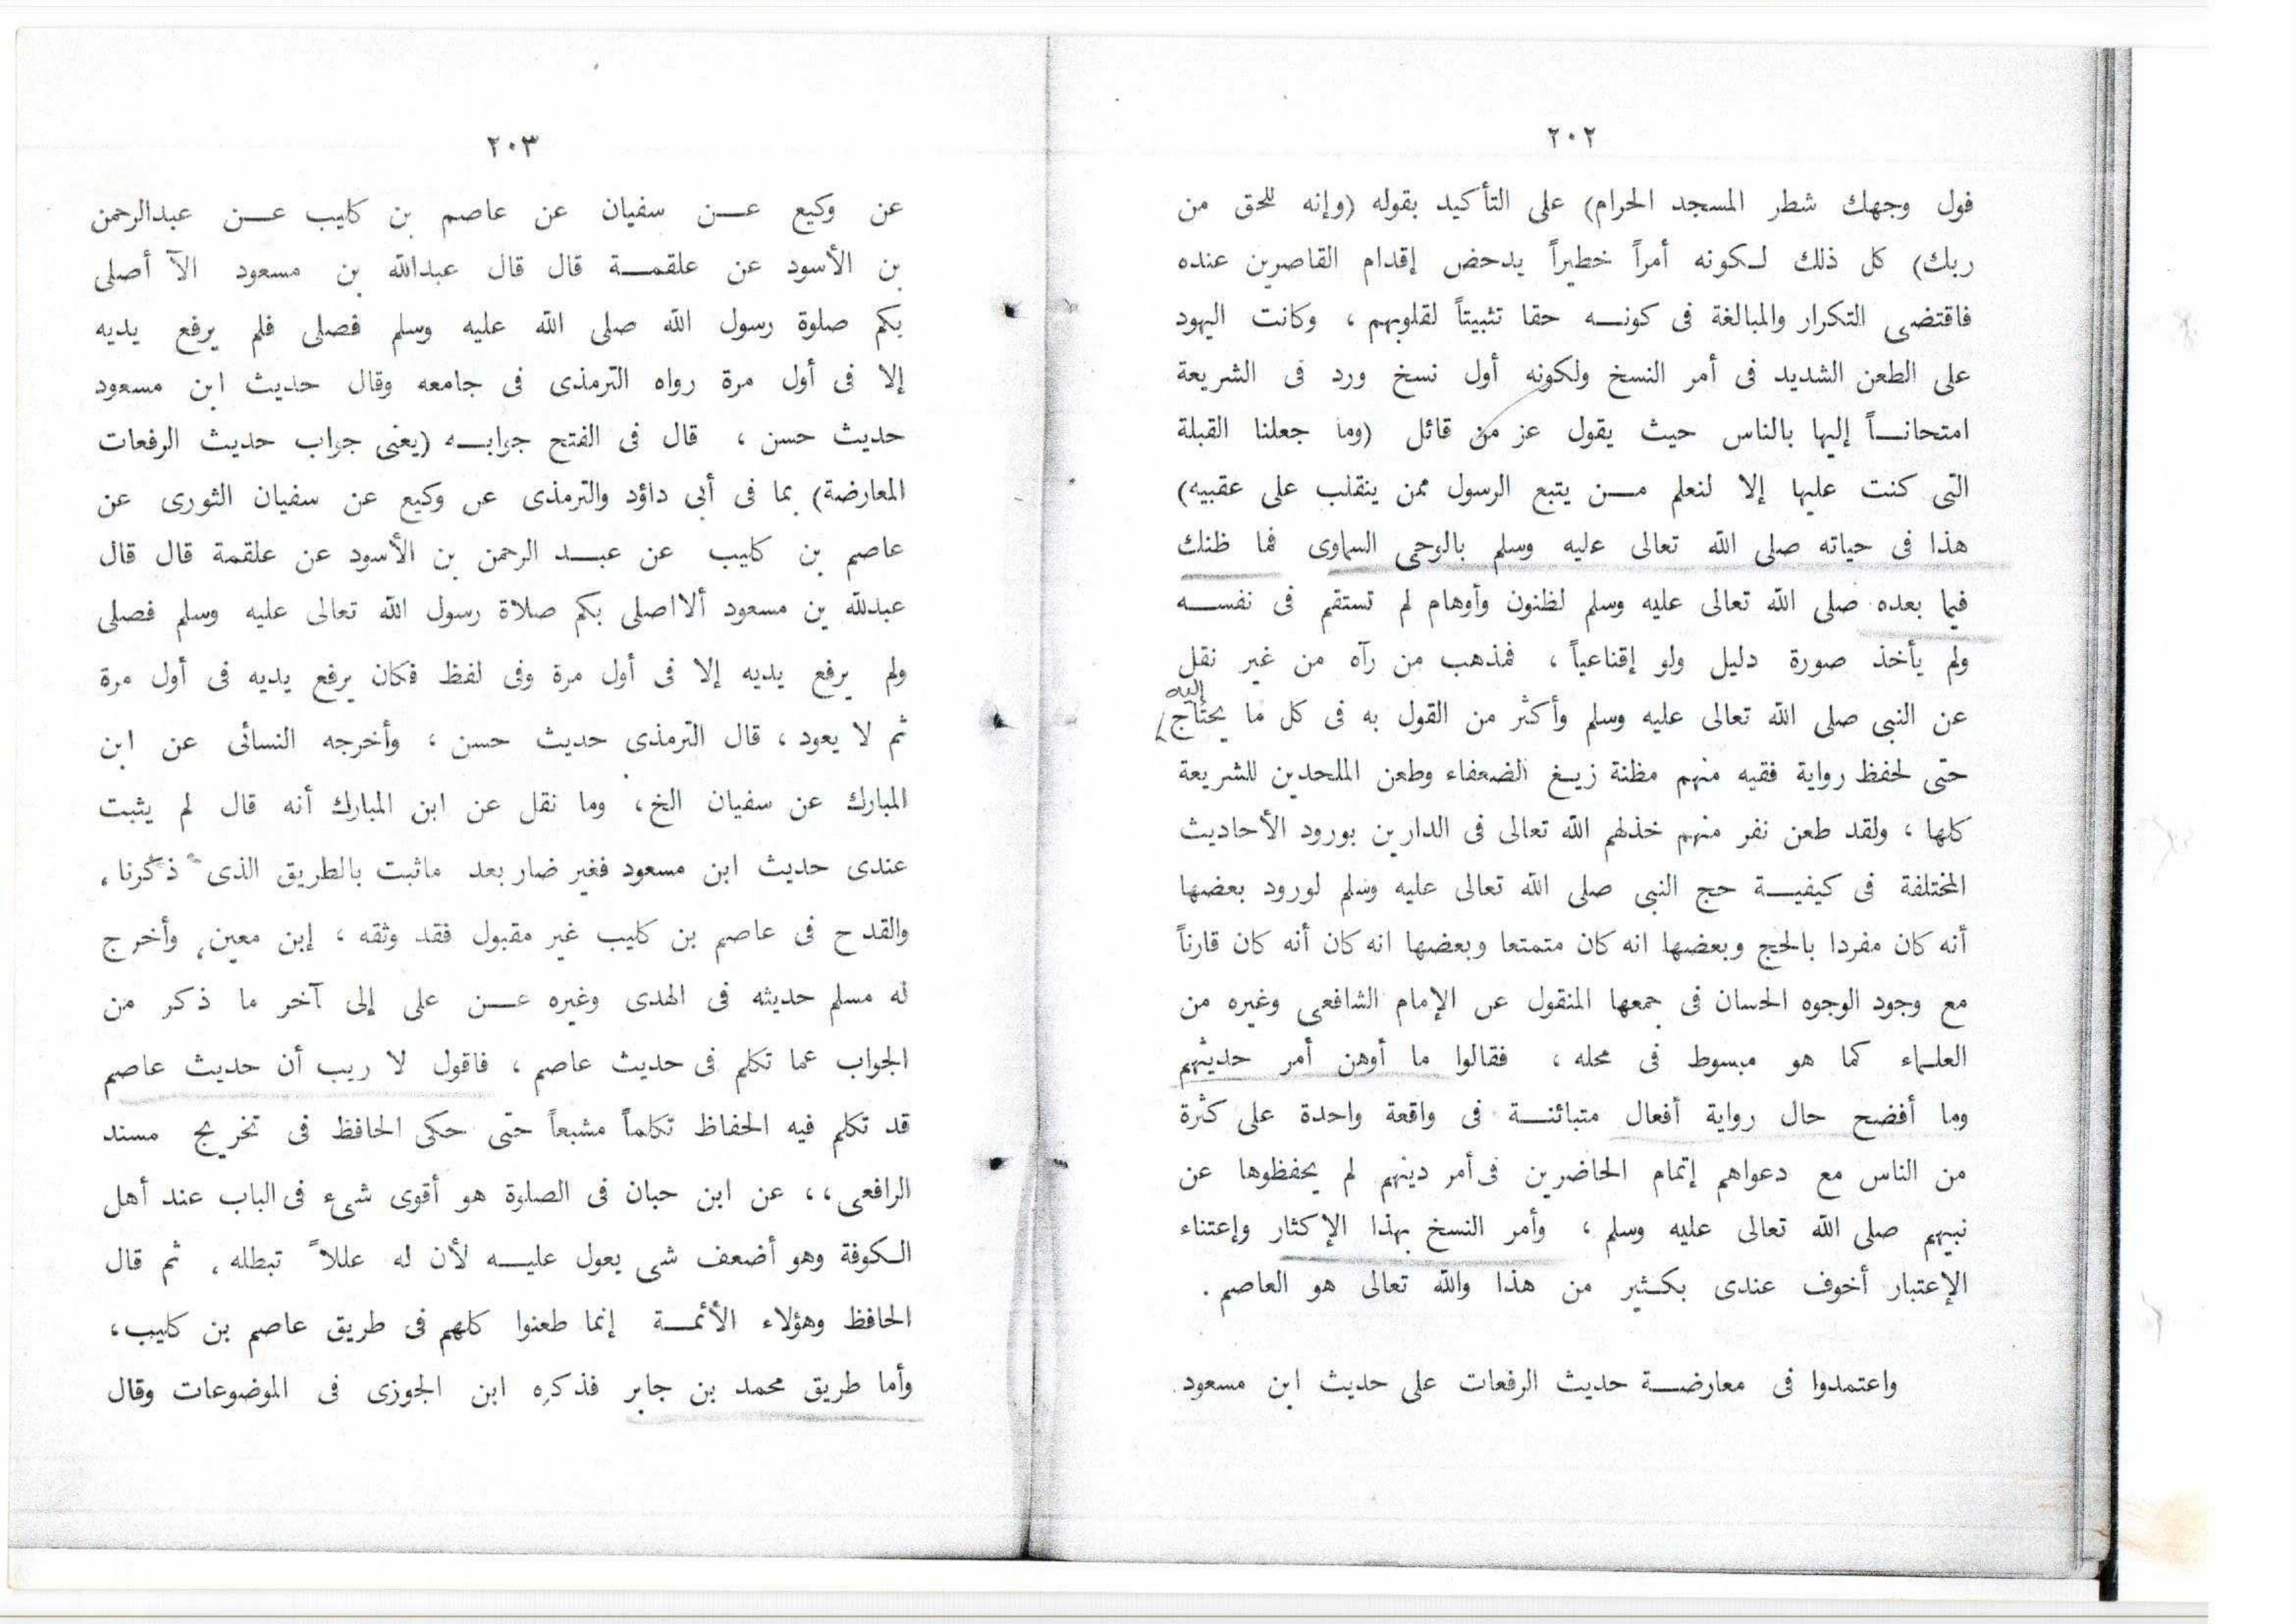 ٢٠٢
فول وجهك شطر المسجد الحرام) على التأكيد بقوله (وإنه للحق من
ربك) كل ذلك لكونه أمراً خطيراً يدحض إقدام القاصرين عنده
فاقتضى التكرار والمبالغة فى كونه حقا تثبيتاً لقلوبهم ، وكانت اليهود
على الطعن الشديد فى أمر النسخ ولكونه أول نسخ ورد فى الشريعة
امتحاناً إليها بالناس حيث يقول عز من قائل (وما جعلنا القبلة
التى كنت عليها إلا لنعلم من يتبع الرسول ممن ينقلب على عقبيه)
هذا فى حياته صلى الله تعالى عليه وسلم بالوحى السماوى فما ظنك
فيما بعده صلى الله تعالى عليه وسلم لظنون وأوهام لم تستقم فى نفسه
ولم يأخذ صورة دليل ولو إقناعياً ، فمذهب من رآه من غير نقل
عن النبى صلى الله تعالى عليه وسلم وأكثر من القول به فى كل ما يحتاج إليه
حتى لحفظ رواية فقيه منهم مظنة زيغ الضعفاء وطعن الملحدين للشريعة
كلها ، ولقد طعن نفر منهم خذلهم الله تعالى فى الدارين بورود الأحاديث
المختلفة فى كيفية حج النبى صلى الله تعالى عليه وسلم لورود بعضها
أنه كان مفردا بالحج وبعضها انه كان متمتعا وبعضها انه كان أنه كان قارناً
مع وجود الوجوه الحسان فى جمعها المنقول عن الإمام الشافعى وغيره من
العلماء كما هو مبسوط فى محله ، فقالوا ما أوهن أمر حديثهم
وما أفضح حال رواية أفعال متبائنة فى واقعة واحدة على كثرة
من الناس مع دعواهم إتمام الحاضرين فى أمر دينهم لم يحفظوها عن
نبيهم صلى الله تعالى عليه وسلم ، وأمر النسخ بهذا الإكثار وإعتناء
الإعتبار أخوف عندى بكثير من هذا والله تعالى هو العاصم .
واعتمدوا فى معارضة حديث الرفعات على حديث ابن مسعود
٢٠٣
عن وكيع عن سفيان عن عاصم بن كليب عن عبدالرحمن
بن الأسود عن علقمة قال قال عبدالله بن مسعود الآ أصلى
بكم صلوة رسول الله صلى الله عليه وسلم فصلى فلم يرفع يديه
إلا فى أول مرة رواه الترمذى فى جامعه وقال حديث ابن مسعود
حديث حسن ، قال فى الفتح جوابه (يعنى جواب حديث الرفعات
المعارضة) بما فى أبى داؤد والترمذى عن وكيع عن سفيان الثورى عن
عاصم بن كليب عن عبد الرحمن بن الأسود عن علقمة قال قال
عبدلله بن مسعود ألا اصلى بكم صلاة رسول الله تعالى عليه وسلم فصلى
ولم يرفع يديه إلا فى أول مرة وفى لفظ فكان يرفع يديه فى أول مرة
ثم لا يعود ، قال الترمذى حديث حسن ؛ وأخرجه النسائى عن ابن
المبارك عن سفيان الخ ، وما نقل عن ابن المبارك أنه قال لم يثبت
عندى حديث ابن مسعود فغير ضار بعد ماثبت بالطريق الذى ذكرنا ،
والقدح فى عاصم بن كليب غير مقبول فقد وثقه ، إبن معين، وأخرج
له مسلم حديثه فى الهدى وغيره عن على إلى آخر ما ذكر من
الجواب عما تكلم فى حديث عاصم ، فاقول لا ريب أن حديث عاصم
قد تكلم فيه الحفاظ تكلماً مشبعاً حتى حكى الحافظ فى تخريج مسند
الرافعى ،، عن ابن حبان فى الصلوة هو أقوى شىء فى الباب عند أهل
الكوفة وهو أضعف شى يعول عليه لأن له عللاً تبطله ، ثم قال
الحافظ وهؤلاء الأئمة إنما طعنوا كلهم فى طريق عاصم بن كليب ،
وأما طريق محمد بن جابر فذكره ابن الجوزى فى الموضوعات وقال